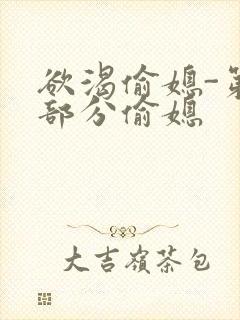 欲渴偷媳-第
部分偷媳
大吉嶺茶包